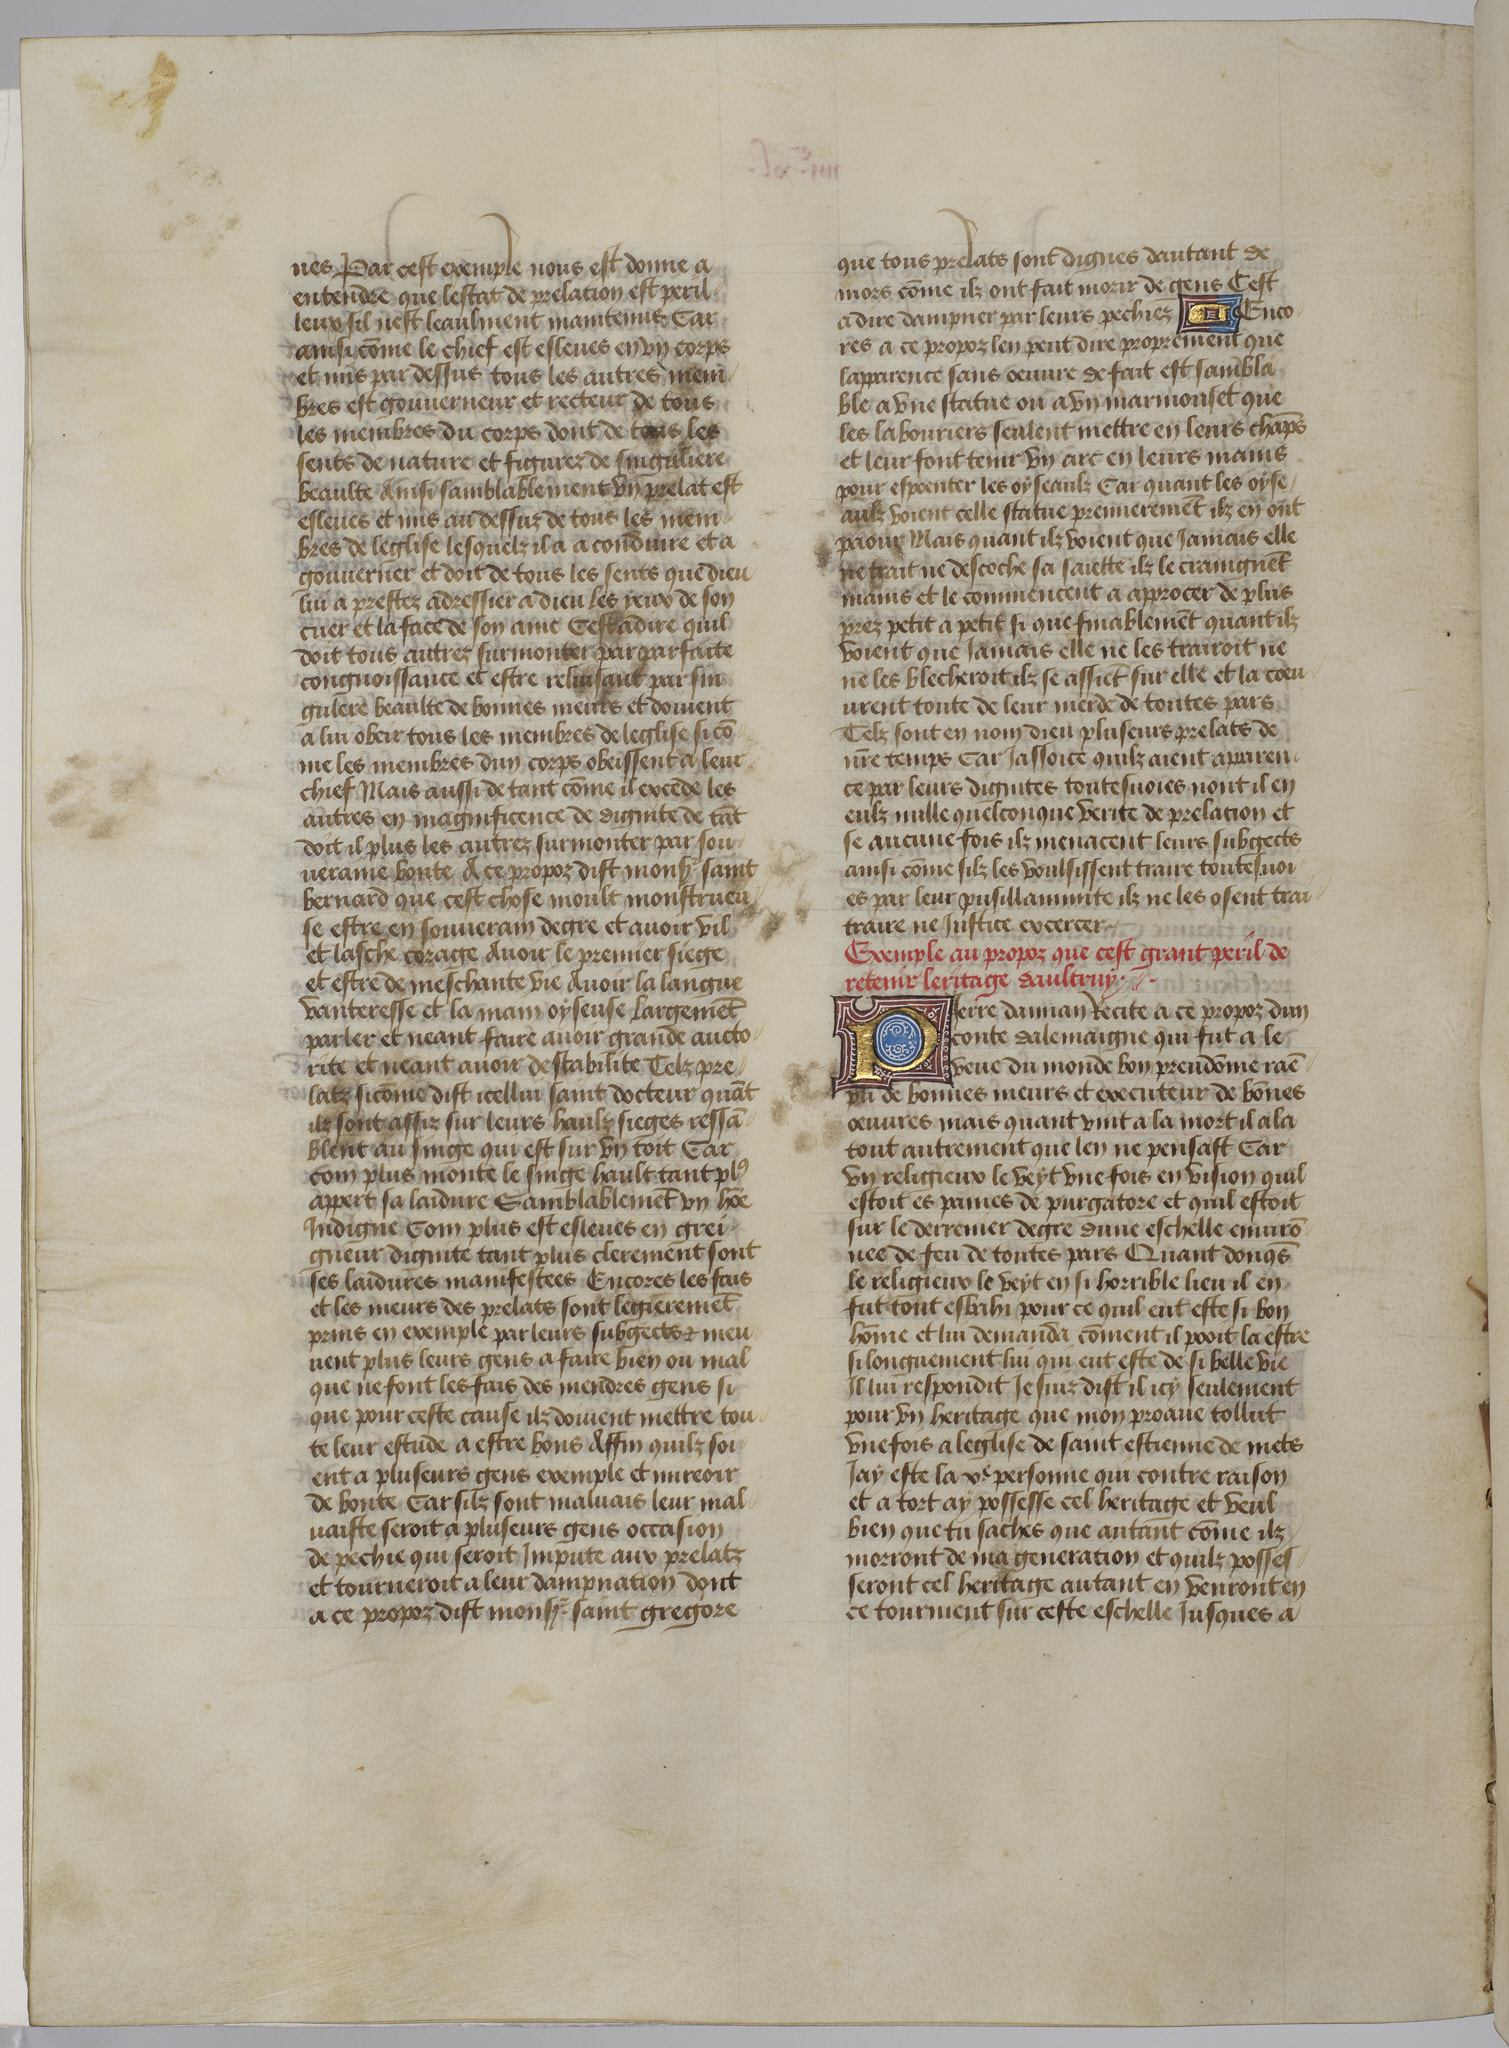 nes Par cest exemple nous est donne a
entendre que lestat de prelation est peril
leux sil nest leaulment maintenus Car
ainsi cōme le chief est esleues en vn corps
et mis par dessus tous les autres mem
bres est gouuerneur et recteur de tous
les membres du corps dont de tous les
sents de nature et figurez de singuliere
beaulte Ainsi samblablement vn prelat est
esleues et mis au dessuz de tous les mem
bres de leglise lesquelz il a a conduire et a
gouuerner et doit de tous les sents que dieu
lui a prestez adressier a dieu les yeux de son
cuer et la face de son ame Cest adire quil
doit tous autrez surmonter par parfaite
congnoissance et estre reluisant par sin
gulere beaulte de bonnes meurs et doiuent
a lui obeir tous les membres de leglise si cō
me les membres dun corps obeissent a leur
chief Mais aussi de tant cōme il excede les
autres en magnificence de dignite de tāt
doit il plus les autrez surmonter par sou
ueraine bonte A ce propoz dist monsr saint
bernard que cest chose moult monstrueu
se estre en souuerain degre et auoir vil
et lasche corage Auoir le premier siege
et estre de meschante vie Auoir la langue
vanteresse et la main oyseuse Largemēt
parler et neant faire auoir grande aucto
rite et neant auoir destabilite Telz pre
latz sicōme dist icellui saint docteur quāt
ilz sont assiz sur leurs haulz sieges ressā
blent au singe qui est sur vn toit Car
com plus monte le singe hault tant pl9
appert sa laidure Samblablemēt vn hōe
Indigne Com plus est esleues en grei
gneur dignite tant plus clerement sont
ses laidures manifestees Encores les fais
et les meurs des prelats sont legieremēt
prins en exemple par leurs subgects & meu
uent plus leurs gens a faire bien ou mal
que ne font les fais des mendres gens si
que pour ceste cause ilz doiuent mettre tou
te leur estude a estre bons Affin quilz soi
ent a pluseurs gens exemple et mireoir
de bonte Car silz sont maluais leur mal
uaiste seroit a pluseurs gens occasion
de pechie qui seroit Impute aux prelatz
et tourneroit a leur dampnation dont
a ce propoz dist monsr saint gregore
que tous prelats sont dignes dautant de
mors cōme ilz ont fait morir de gens Cest
adire dampner par leurs pechiez Enco
res a ce propoz len peut dire proprement que
lapparence sans oeuure de fait est sambla
ble a vne statue ou a vn marmouset que
les labouriers seulent mettre en leurs chāps
et leur font tenir vn arc en leurs mains
pour espoenter les oyseaulz Car quant les oyse
aulz voient celle statue premieremēt ilz en ont
paour Mais quant ilz voient que Jamais elle
ne trait ne descoche sa saiette ilz le craingnēt
mains et le commencent a approcer de plus
prez petit a petit si que finablemēt quant ilz
voient que Jamais elle ne les trairoit ne
ne les blecheroit ilz se assiēt sur elle et la coeu
urent toute de leur merde de toutes pars
Telz sont en nom dieu pluseurs prelats de
nr̄e temps Car Jassoice quilz aient aparen
ce par leurs dignites toutesuoies nont il en
eulz nulle quelconque verite de prelation et
se aucune fois ilz menacent leurs subgects
ainsi cōme silz les voulsissent traire toutesuoi
es par leur pusillanimite ilz ne les osent trai
traire ne Justice excercer
Exemple au propoz que cest grant peril de
retenir leritage daultruy
Pierre damian Recite a ce propoz dun
conte dalemaigne qui fut a le
veue du monde bon preudōme raē
pli de bonnes meurs et executeur de bōnes
oeuures mais quant vint a la mort il ala
tout autrement que len ne pensast Car
vn religieux le veyt vne fois en vision quil
estoit es paines de purgatore et quil estoit
sur le derrenier degre dune eschelle enuirō
nee de feu de toutes pars Quant donqs
le religieux le veyt en si horrible lieu il en
fut tout esbahi pour ce quil eut este si bon
hōme et lui demanda cōment il pooit la estre
si longuement lui qui eut este de si belle vie
Il lui respondit Je suiz dist il icy seulement
pour vn heritage que mon proaue tollut
vne fois a leglise de saint estienne de mets
Jay este la xe personne qui contre raison
et a tort ay possesse cel heritage et veul
bien que tu saches que autant cōme ilz
morront de ma generation et quilz posses
seront cel heritage autant en venront en
ce tourment sur ceste eschelle Jusques a